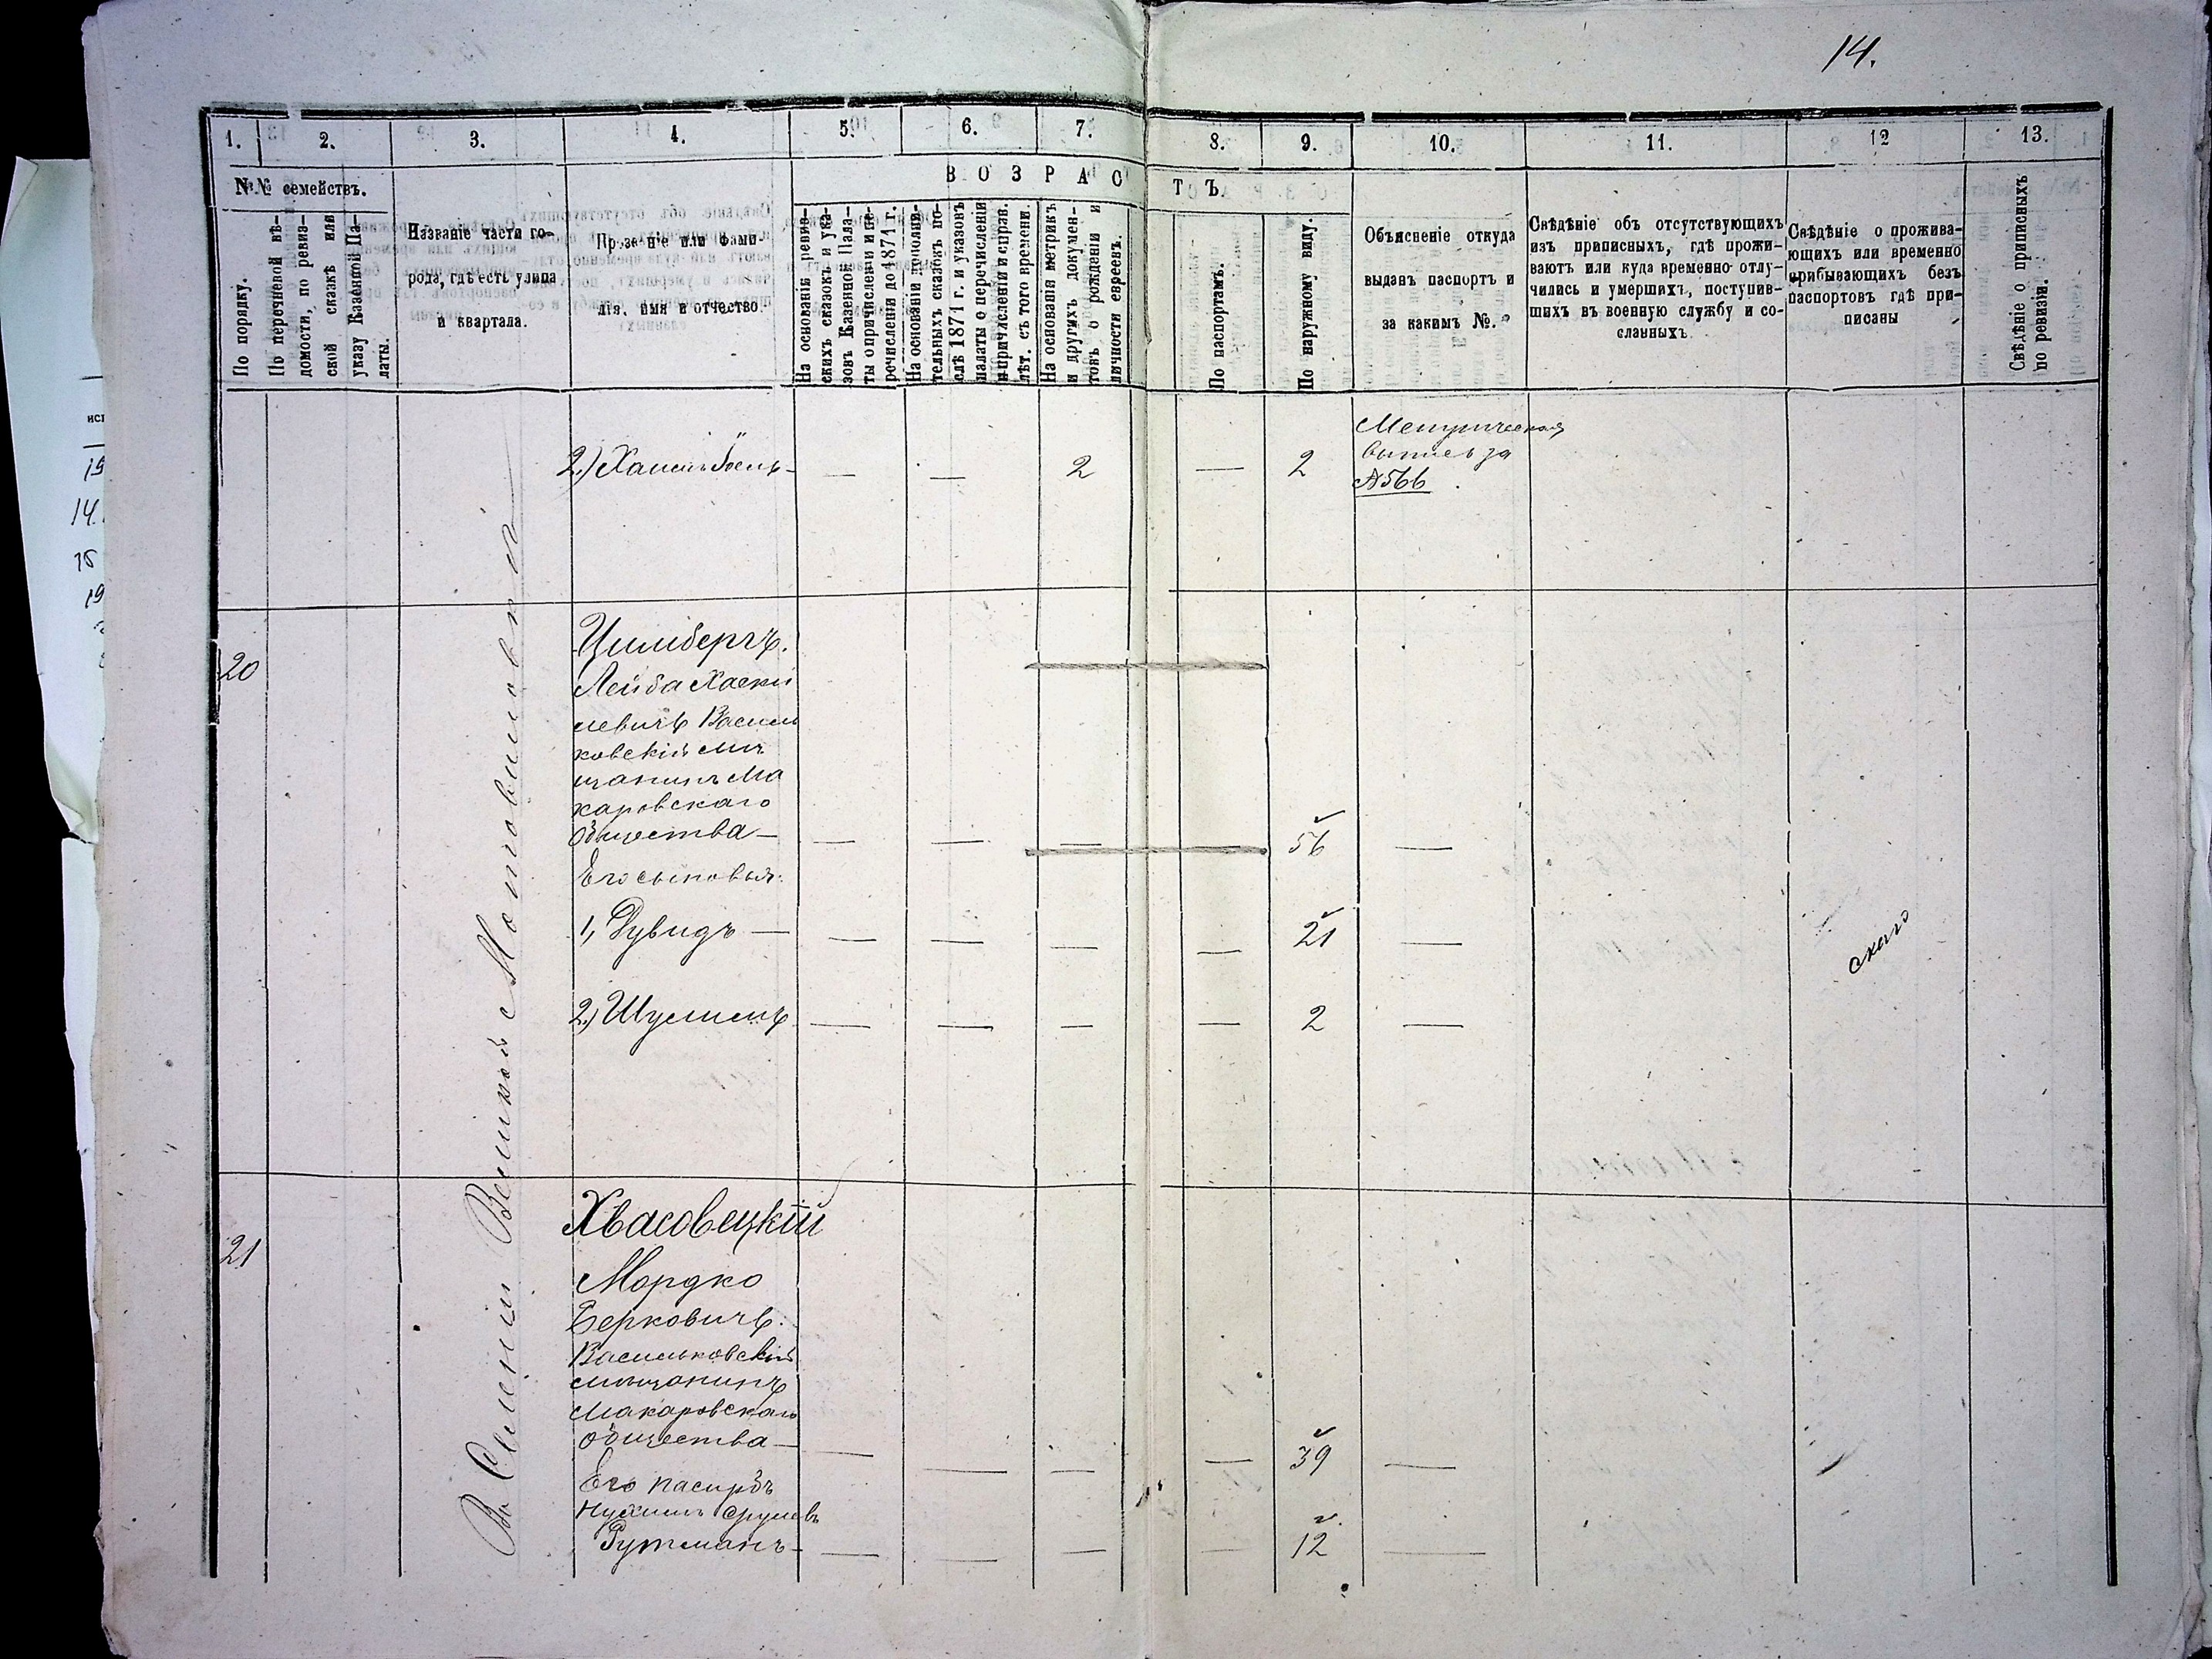 14.
1. 2. 3. 4. 5. 6. 7. 8. 9. 10. 11. 12 13.
№№ семействъ.
В О З Р А С Т Ъ.
По порядку.
По перечневой вѣ-
домости, по ревиз-
ской сказкѣ или
указу Казенной Па-
латы.
Названіе части го-
рода, гдѣ есть улица
и квартала.
Прозваніе или фами-
лія, имя и отчество.
На основаніи ревиз-
скихъ сказокъ и ука-
зовъ Казенной Пала-
ты о причисленіи и пе-
речисленіи до 1871 г.
На основаніи дополни-
тельныхъ сказокъ по-
слѣ 1871 г. и указовъ
палаты о перечисленіи
и причисленіи и справ.
лѣт. съ того времени.
На основаніи метрикъ
и другихъ докумен-
товъ о рожденіи и
личности евреевъ.
По паспортамъ.
По наружному виду.
Объясненіе откуда
выданъ паспортъ и
за какимъ №.
Свѣдѣніе объ отсутствующихъ
изъ приписныхъ, гдѣ прожи-
ваютъ или куда временно отлу-
чились и умершихъ, поступив-
шихъ въ военную службу и со-
сланныхъ.
Свѣдѣніе о прожива-
ющихъ или временно
прибывающихъ безъ
паспортовъ гдѣ при-
писаны
Свѣдѣніе о приписныхъ
по ревизіи.
Въ Селеніи Великой Мотовиловкѣ
2.) — — 2 — 2
Метрическая
выпись за
№566
20
Цимбергъ.
Лейба Хаски
левичъ Василь
ковскій мѣ
щанинъ Ма
каровскаго
Общества — — — — — 56 —
Его сыновья:
1, Дувидъ — — — — — 21 —
2.) Шулимъ — — — — 2 —
скаго
21
Хвасовецкій
Мордко
Берковичъ.
Васильковскій
мѣщанинъ
Макаровскаго
общества — — — — — 39 —
Его пасирбъ
Нухимъ Срулевъ
Гутманъ — — — — — 12 —
15
14.
19